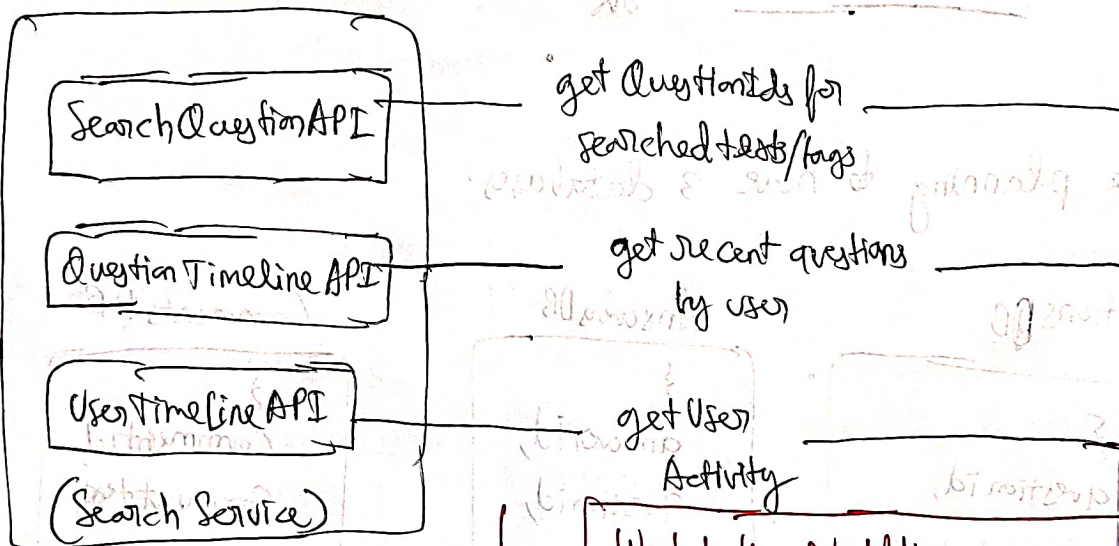 SearchQuestionAPI
get QuestionIds for
searched texts/tags
QuestionTimelineAPI
get recent questions
by user
UserTimelineAPI
get User
Activity
(Search Service)